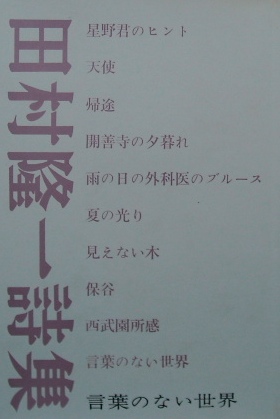 田村隆一詩集
星野君のヒント
天使
帰途
開善寺の夕暮れ
雨の日の外科医のブルース
夏の光り
見えない木
保谷
西武園所感
言葉のない世界
言葉のない世界